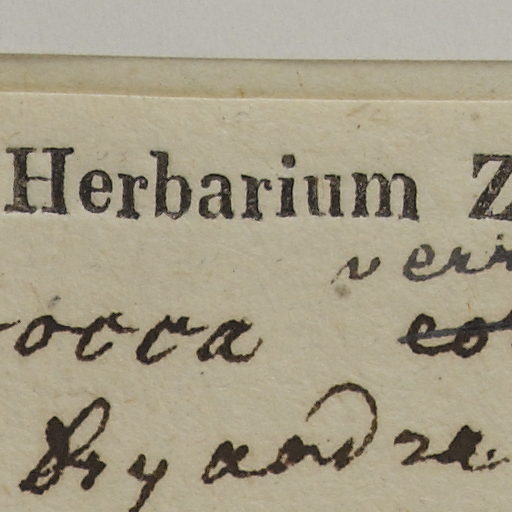 Herbarium Z
verr
rocca co
Dryandra.